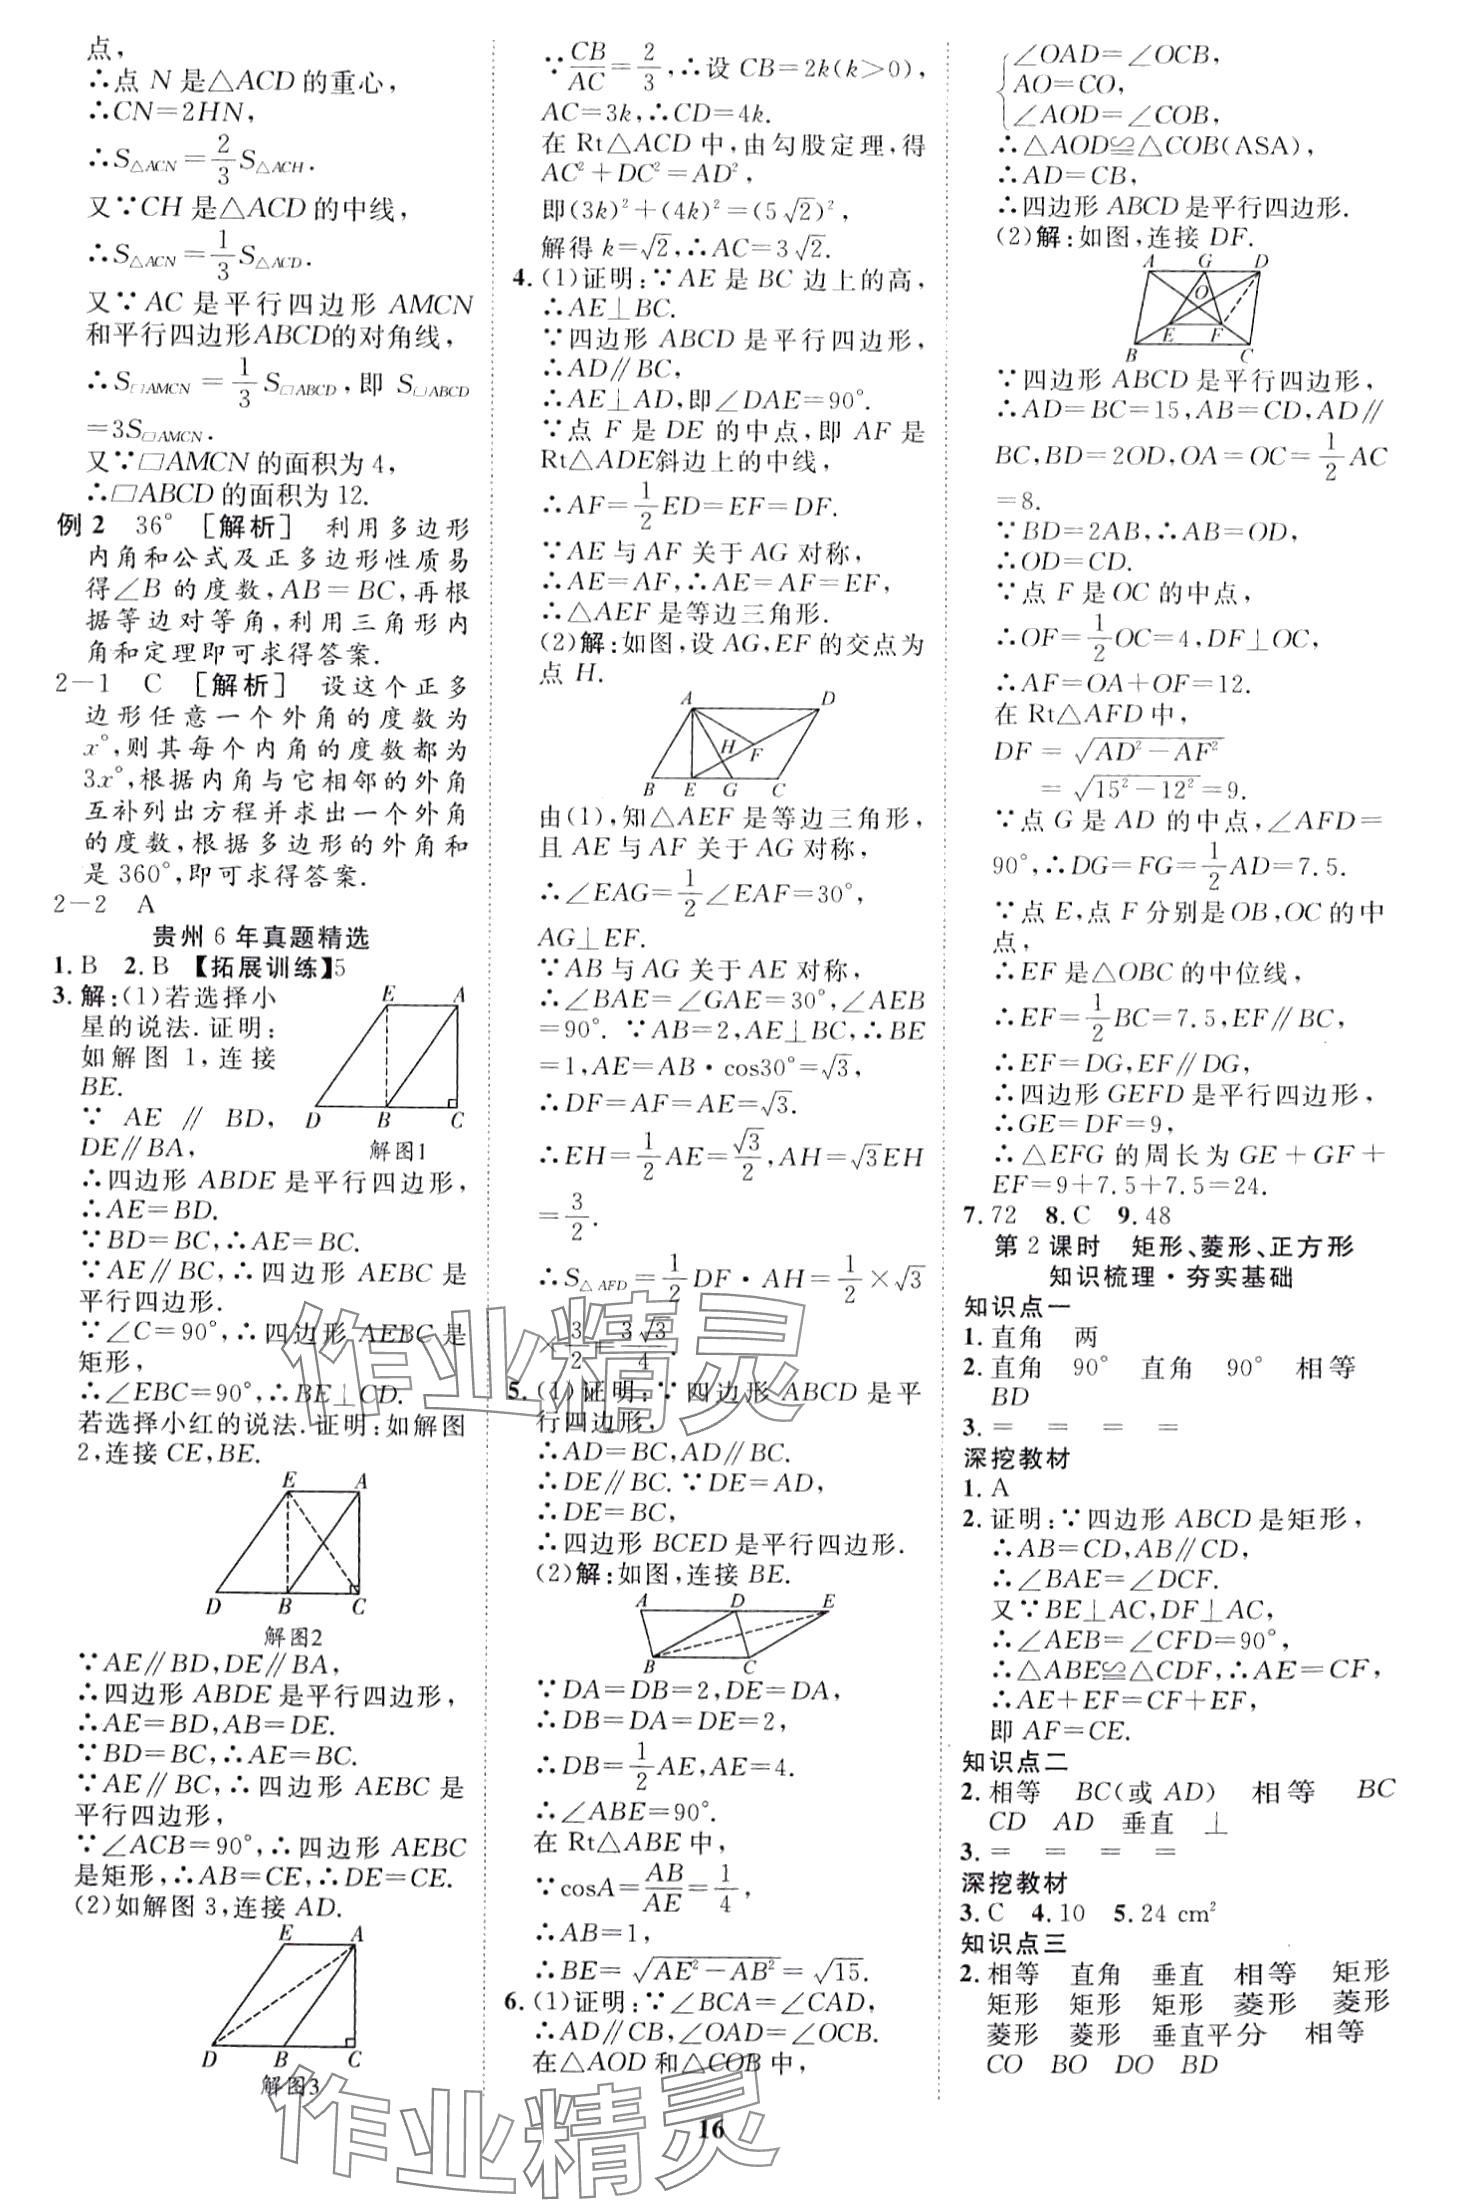 点,
∴点 N 是△ACD 的重心,
∴CN=2HN,
∴S△ACN=2/3 S△ACH.
又∵CH 是△ACD 的中线,
∴S△ACN=1/3 S△ACD.
又∵AC 是平行四边形 AMCN
和平行四边形ABCD的对角线,
∴S□AMCN=1/3 S□ABCD,即 S□ABCD
=3S□AMCN.
又∵□AMCN 的面积为 4,
∴□ABCD 的面积为 12.
例2 36° [解析] 利用多边形
内角和公式及正多边形性质易
得∠B 的度数,AB=BC,再根
据等边对等角,利用三角形内
角和定理即可求得答案.
2-1 C [解析] 设这个正多
边形任意一个外角的度数为
x°,则其每个内角的度数都为
3x°,根据内角与它相邻的外角
互补列出方程并求出一个外角
的度数,根据多边形的外角和
是 360°,即可求得答案.
2-2 A
贵州 6 年真题精选
1.B 2.B 【拓展训练】5
3.解:(1)若选择小
星的说法.证明:
如解图 1,连接
BE.
∵ AE ∥ BD,
DE∥BA,
E A
D B C
解图1
∴四边形 ABDE 是平行四边形,
∴AE=BD.
∵BD=BC,∴AE=BC.
∵AE∥BC,∴四边形 AEBC 是
平行四边形.
∵∠C=90°,∴四边形 AEBC 是
矩形,
∴∠EBC=90°,∴BE⊥CD.
若选择小红的说法.证明:如解图
2,连接 CE,BE.
E A
D B C
解图2
∵AE∥BD,DE∥BA,
∴四边形 ABDE 是平行四边形,
∴AE=BD,AB=DE.
∵BD=BC,∴AE=BC.
∵AE∥BC,∴四边形 AEBC 是
平行四边形,
∵∠ACB=90°,∴四边形 AEBC
是矩形,∴AB=CE,∴DE=CE.
(2)如解图 3,连接 AD.
E A
D B C
解图3
∵CB/AC=2/3,∴设 CB=2k(k>0),
AC=3k,∴CD=4k.
在 Rt△ACD 中,由勾股定理,得
AC²+DC²=AD²,
即(3k)²+(4k)²=(5√2)²,
解得 k=√2,∴AC=3√2.
4.(1)证明:∵AE 是 BC 边上的高,
∴AE⊥BC.
∵四边形 ABCD 是平行四边形,
∴AD∥BC,
∴AE⊥AD,即∠DAE=90°.
∵点 F 是 DE 的中点,即 AF 是
Rt△ADE斜边上的中线,
∴AF=1/2 ED=EF=DF.
∵AE 与 AF 关于 AG 对称,
∴AE=AF,∴AE=AF=EF,
∴△AEF 是等边三角形.
(2)解:如图,设 AG,EF 的交点为
点 H.
A D
H F
B E G C
由(1),知△AEF 是等边三角形,
且 AE 与 AF 关于 AG 对称,
∴∠EAG=1/2∠EAF=30°,
AG⊥EF.
∵AB 与 AG 关于 AE 对称,
∴∠BAE=∠GAE=30°,∠AEB
=90°. ∵AB=2,AE⊥BC,∴BE
=1,AE=AB·cos30°=√3,
∴DF=AF=AE=√3.
∴EH=1/2 AE=√3/2,AH=√3EH
=3/2.
∴S△AFD=1/2 DF·AH=1/2×√3
×3/2=3√3/4.
5.(1)证明:∵四边形 ABCD 是平
行四边形,
∴AD=BC,AD∥BC.
∴DE∥BC.∵DE=AD,
∴DE=BC,
∴四边形 BCED 是平行四边形.
(2)解:如图,连接 BE.
A D E
B C
∵DA=DB=2,DE=DA,
∴DB=DA=DE=2,
∴DB=1/2 AE,AE=4.
∴∠ABE=90°.
在 Rt△ABE 中,
∵cosA=AB/AE=1/4,
∴AB=1,
∴BE=√(AE²-AB²)=√15.
6.(1)证明:∵∠BCA=∠CAD,
∴AD∥CB,∠OAD=∠OCB.
在△AOD 和△COB 中,
∠OAD=∠OCB,
AO=CO,
∠AOD=∠COB,
∴△AOD≌△COB(ASA),
∴AD=CB,
∴四边形 ABCD 是平行四边形.
(2)解:如图,连接 DF.
A G D
O
E F
B C
∵四边形 ABCD 是平行四边形,
∴AD=BC=15,AB=CD,AD∥
BC,BD=2OD,OA=OC=1/2 AC
=8.
∵BD=2AB,∴AB=OD,
∴OD=CD.
∵点 F 是 OC 的中点,
∴OF=1/2 OC=4,DF⊥OC,
∴AF=OA+OF=12.
在 Rt△AFD 中,
DF=√(AD²-AF²)
=√(15²-12²)=9.
∵点 G 是 AD 的中点,∠AFD=
90°,∴DG=FG=1/2 AD=7.5.
∵点 E,点 F 分别是 OB,OC 的中
点,
∴EF 是△OBC 的中位线,
∴EF=1/2 BC=7.5,EF∥BC,
∴EF=DG,EF∥DG,
∴四边形 GEFD 是平行四边形,
∴GE=DF=9,
∴△EFG 的周长为 GE+GF+
EF=9+7.5+7.5=24.
7.72 8.C 9.48
第 2 课时 矩形、菱形、正方形
知识梳理·夯实基础
知识点一
1.直角 两
2.直角 90° 直角 90° 相等
BD
3.= = = =
深挖教材
1.A
2.证明:∵四边形 ABCD 是矩形,
∴AB=CD,AB∥CD,
∴∠BAE=∠DCF.
又∵BE⊥AC,DF⊥AC,
∴∠AEB=∠CFD=90°,
∴△ABE≌△CDF,∴AE=CF,
∴AE+EF=CF+EF,
即 AF=CE.
知识点二
2.相等 BC(或 AD) 相等 BC
CD AD 垂直 ⊥
3.= = = =
深挖教材
3.C 4.10 5.24 cm²
知识点三
2.相等 直角 垂直 相等 矩形
矩形 矩形 矩形 菱形 菱形
菱形 菱形 垂直平分 相等
CO BO DO BD
16
作业精灵
作业精灵